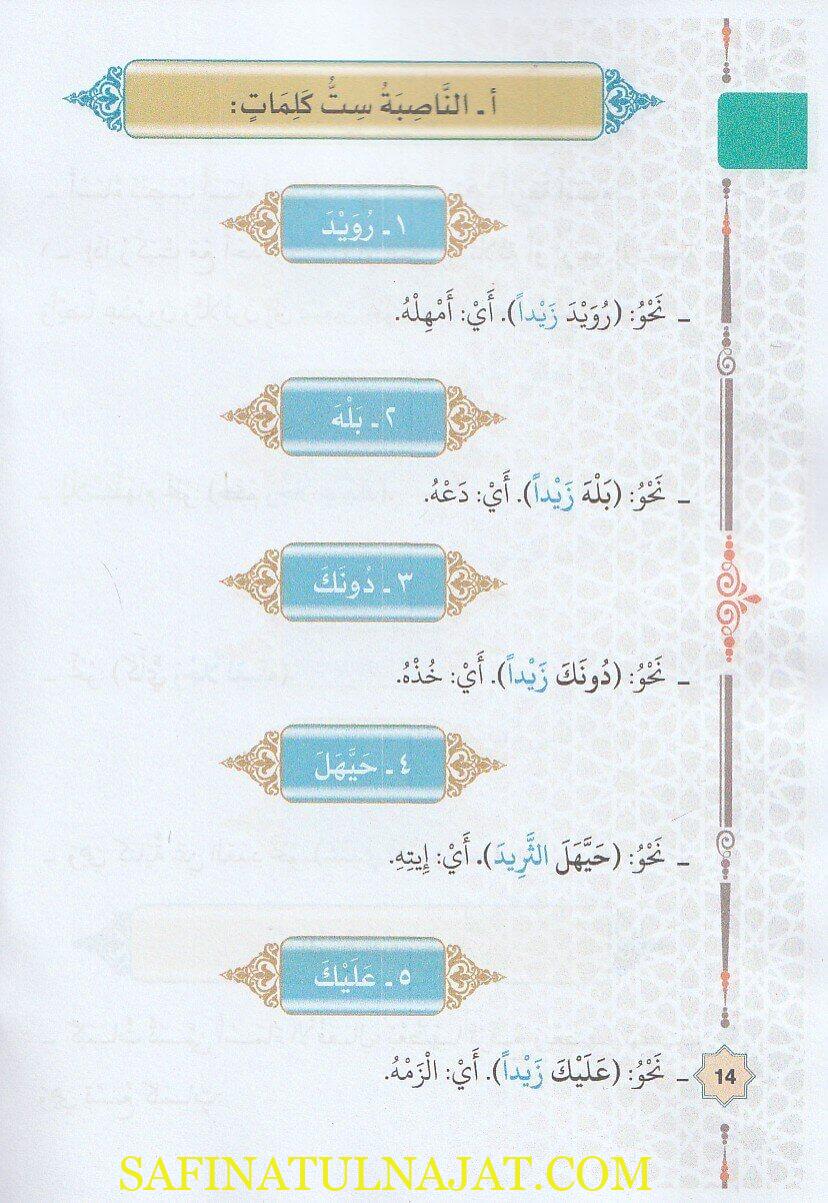 أ ـ النَّاصِبَةُ سِتُّ كَلِمَاتٍ:
١ ـ رُوَيْدَ
ـ نَحْوُ: (رُوَيْدَ زَيْداً). أَيْ: أَمْهِلْهُ.
٢ ـ بَلْهَ
ـ نَحْوُ: (بَلْهَ زَيْداً). أَيْ: دَعْهُ.
٣ ـ دُونَكَ
ـ نَحْوُ: (دُونَكَ زَيْداً). أَيْ: خُذْهُ.
٤ ـ حَيَّهَلَ
ـ نَحْوُ: (حَيَّهَلَ الثَّرِيدَ). أَيْ: إِيتِهِ.
٥ ـ عَلَيْكَ
ـ نَحْوُ: (عَلَيْكَ زَيْداً). أَيْ: الْزَمْهُ.
14
SAFINATULNAJAT.COM